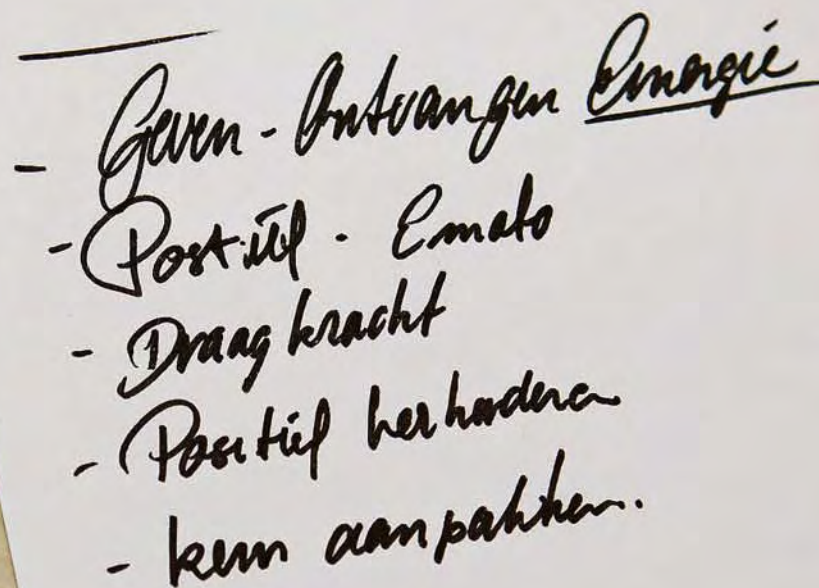 - Geven - Ontvangen Energie
- Positief - Emoto
- Draagkracht
- Positief herkaderen
- kern aanpakken.